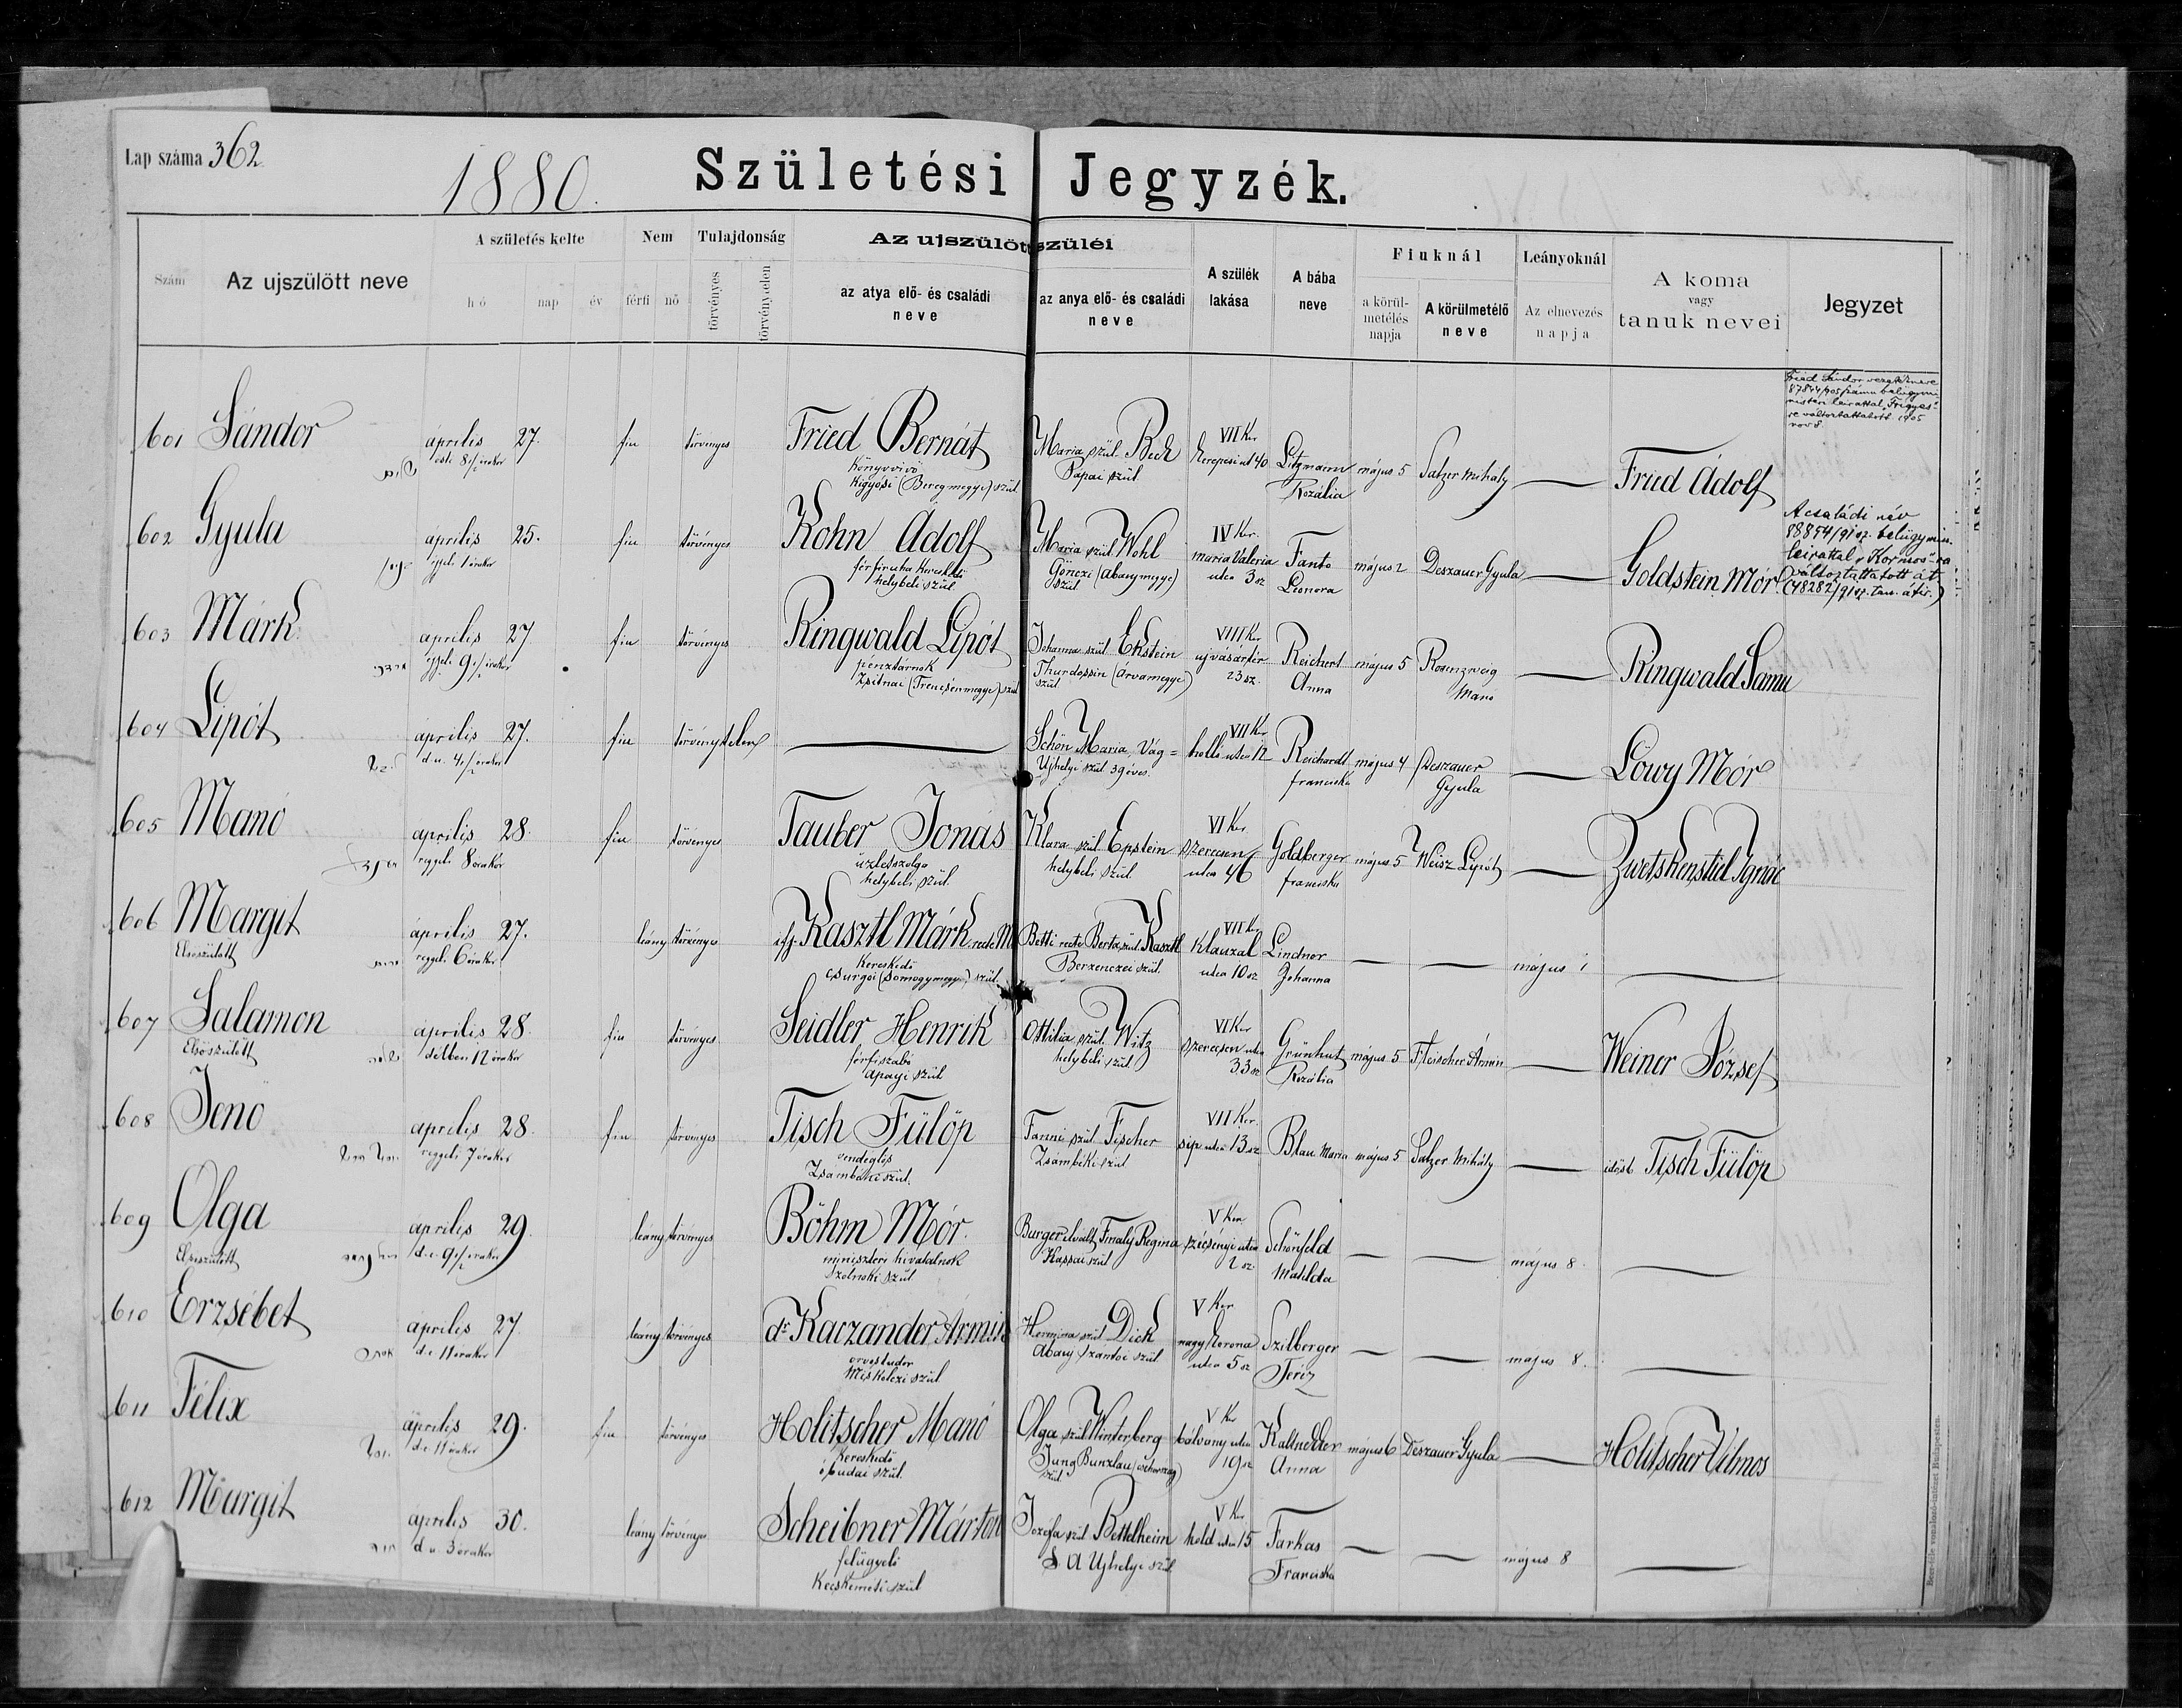 Lap száma 362
1880.
Születési Jegyzék.
Szám
Az ujszülött neve
A születés kelte
hó nap év
Nem
férfi nő
Tulajdonság
törvényes törvénytelen
Az ujszülött szüléi
az atya elő- és családi
neve
az anya elő- és családi
neve
A szülék
lakása
A bába
neve
Fiuknál
a körül-
metélés
napja
A körülmetélő
neve
Leányoknál
Az elnevezés
napja
A koma
vagy
tanuk nevei
Jegyzet
601 Sándor április 27. fiu törvényes Fried Bernát Maria szül. Beck VII Ker Litzmann május 5 Salzer Mihály — Fried Adolf
esti 8 1/2 órakor
Könyvvivő
Kigyósi (Beregmegye) szül.
Pápai szül
Kerepesi ut 40
Rozália
Fried Sándor vezetékneve
87844/905 számu belügymi-
niszteri leirattal "Frigyes"-
re változtattatott. 1905
nov 8.
602 Gyula április 25. fiu törvényes Kohn Adolf Maria szül. Wohl IV Ker. Fanto május 2 Deszauer Gyula — Goldstein Mór
1 órakor
férfiruha kereskedő
helybeli szül.
Gönczi (Abaujmegye)
szül.
maria Valeria
utca 3 sz
Leonora
A családi név
88854/91 sz. belügymin.
leirattal "Kormos"-ra
változtattatott át.
(48282/91 sz. tan. átir.)
603 Márk április 27 fiu törvényes Ringwald Lipót Johanna szül. Ekstein VIII Ker Reichert május 5 Rosenzweig — Ringwald Samu
9 1/2 órakor
pénztárnok
Zsitnai (Trencsénmegye) szül
Thurdossin (Árvamegye)
szül.
ujvásártér
23 sz.
Anna
Manó
604 Lipót április 27. fiu törvénytelen — Schön Maria Vág= VII Ker Reichardt május 4 Deszauer — Löwy Mór
d.u. 4 1/2 órakor
Ujhelyi szül. 39 éves.
holló utca 12
franciska
Gyula
605 Manó április 28. fiu törvényes Tauber Jonás Klara szül. Epstein VI Ker. Goldberger május 5 Weisz Lipót — Zwetskenstiel Ignác
reggeli 8 órakor
üzletszolga
helybeli szül.
helybeli szül.
szerecsen
utca 46
franciska
606 Margit április 27. leány törvényes ifj. Kasztl Márk recte M Betti recte Berta szül. Kasztl VII Ker. Lindner — — május 1 —
Elsőszülött
reggeli 6 órakor
Kereskedő
Csurgói (Somogymegye) szül.
Berzenczei szül.
Klauzal
utca 10 sz
Johanna
607 Salamon április 28. fiu törvényes Seidler Henrik Ottilia szül. Witz VI Ker Grünhut május 5 Fleischer Ármin — Weiner József
Elsőszülött
délben 12 órakor
férfiszabó
apagyi szül
helybeli szül
szerecsen utca
33 sz
Rozália
608 Jenő április 28. fiu törvényes Tisch Fülöp Fanni szül. Fischer VII Ker. Blau Maria május 5 Salzer Mihály — idősb Tisch Fülöp
reggeli 7 órakor
vendéglős
Zsámbéki szül.
Zsámbéki szül
sip utca 13 sz
609 Olga április 29. leány törvényes Böhm Mór. Burger elvált Finaly Regina V Ker Schönfeld — — május 8. —
Elsőszülött
d.e. 9 1/2 órakor
miniszteri hivatalnok
Szolnoki szül
Kassai szül
széchényi utca
2 sz.
Matilda
610 Erzsébet április 27. leány törvényes dr Kaczander Ármin Hermina szül. Dick V Ker Szilberger — — május 8. —
d.e. 11 órakor
orvostudor
Miskolczi szül.
Abauj szántói szül.
nagy Korona
utca 5 sz
Teréz
611 Félix április 29. fiu törvényes Holitscher Manó Olga szül. Winterberg V Ker Kaltnecker május 6 Deszauer Gyula — Holitscher Vilmos
d.e. 11 órakor
Kereskedő
óbudai szül.
Jung Bunzlau (csehország)
szül
bálvány utca
19 sz
Anna
612 Margit április 30. leány törvényes Scheibner Márton Jozefa szül. Bettelheim V Ker Farkas — — május 8 —
d u. 3 órakor
felügyelő
Kecskeméti szül
S A Ujhelyi szül
hold utca 15
Franciska